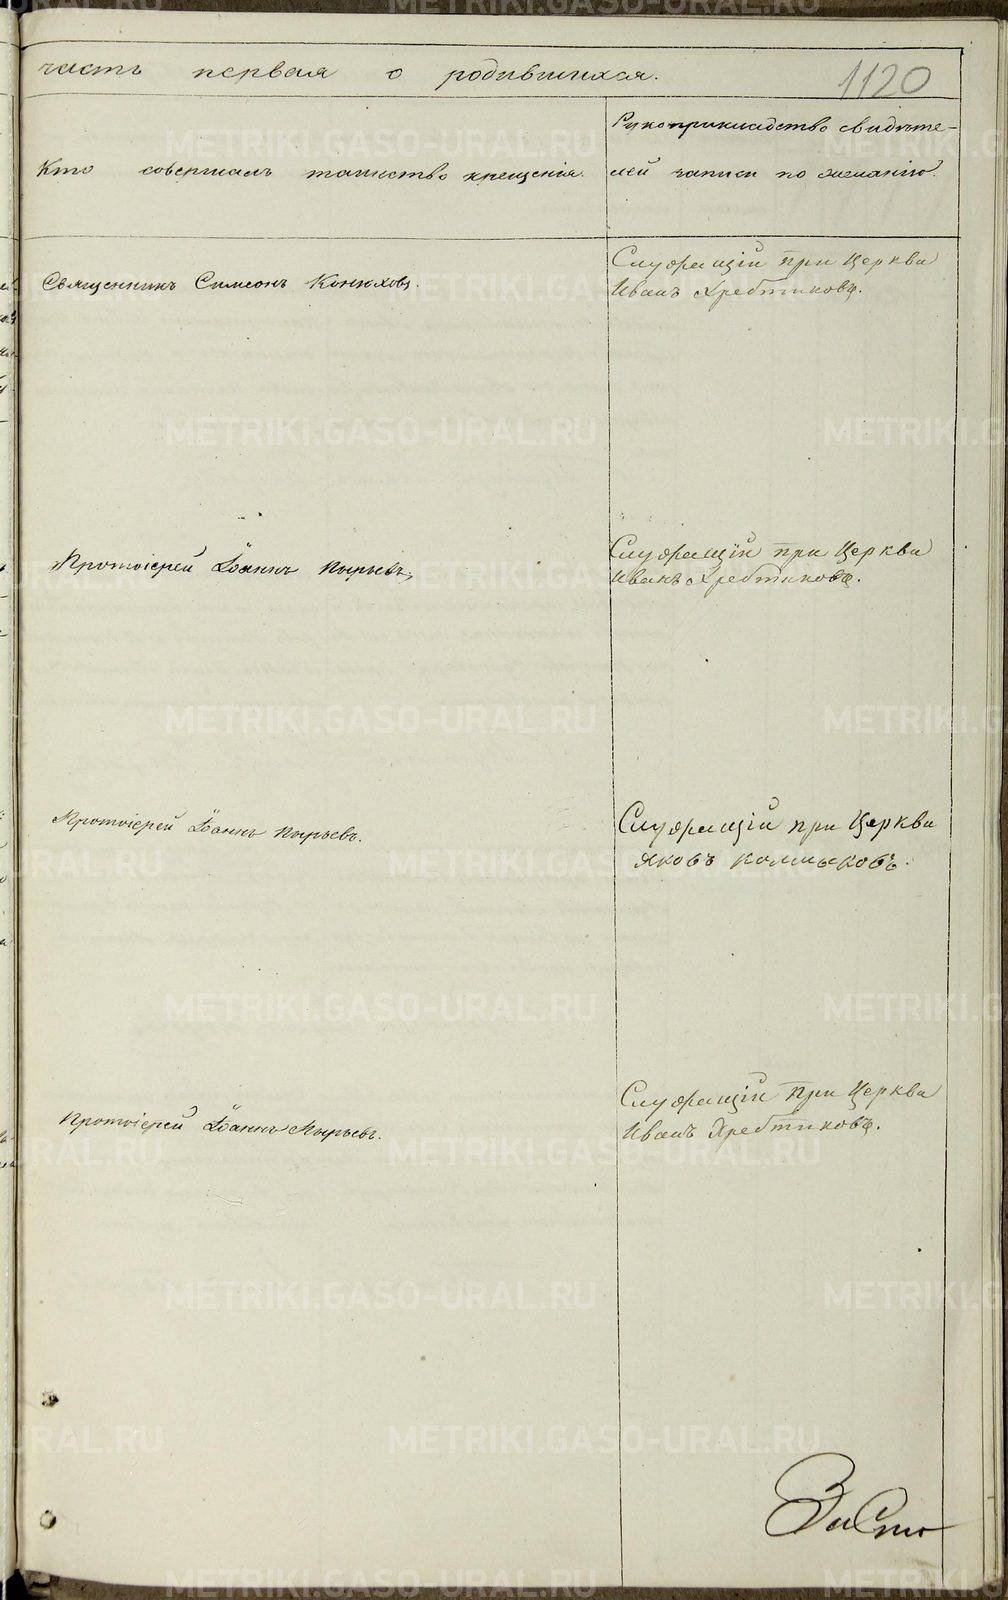 часть первая о родившихся.
1120
Кто совершалъ таинство крещенія.
Рукоприкладство свидѣте-
лей записи по желанію.
Священникъ Симеонъ Конюховъ.
Служащій при Церкви
Иванъ Хребтиковъ.
Протоіерей Іоаннъ Пырьевъ.
Служащій при Церкви
Иванъ Хребтиковъ.
Протоіерей Іоаннъ Пырьевъ.
Служащій при Церкви
Яковъ Колмыковъ.
Протоіерей Іоаннъ Пырьевъ.
Служащій при Церкви
Иванъ Хребтиковъ.
METRIKI.GASO-URAL.RU